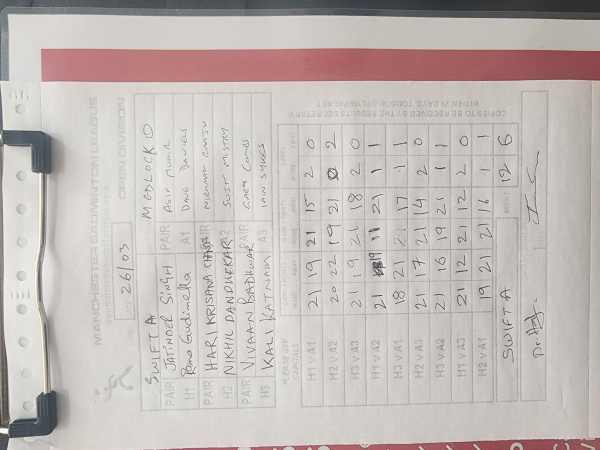 MANCHESTER BADMINTON LEAGUE
OPEN DIVISION
DATE 26/03
SWIFT A MEDLOCK D
PAIR JATINDER SINGH PAIR ASIF
H1 Rana A1 DAVE DANIELS
PAIR HARI KRISHNA PAIR
H2 NIKHIL DANDHEKAR A2 SUJIT MISTRY
PAIR VIVAAN BADHWAR PAIR GARY COMBS
H3 KALI KATNAM A3 IAIN SYKES
PLEASE USE
CAPITALS
H1 V A1 21 19 21 15 2 0
H2 V A2 20 22 19 21 0 2
H3 V A3 21 19 21 18 2 0
H1 V A2 21 19 11 21 1 1
H3 V A1 18 21 21 17 1 1
H2 V A3 21 17 21 14 2 0
H3 V A2 21 16 19 21 1 1
H1 V A3 21 12 21 12 2 0
H2 V A1 19 21 21 16 1 1
SWIFT A RESULT 12 6
COPIES TO BE RECEIVED BY THE RESULTS SECRETARY
WITHIN 21 DAYS, TOMSOU@FLYINPIG.NET